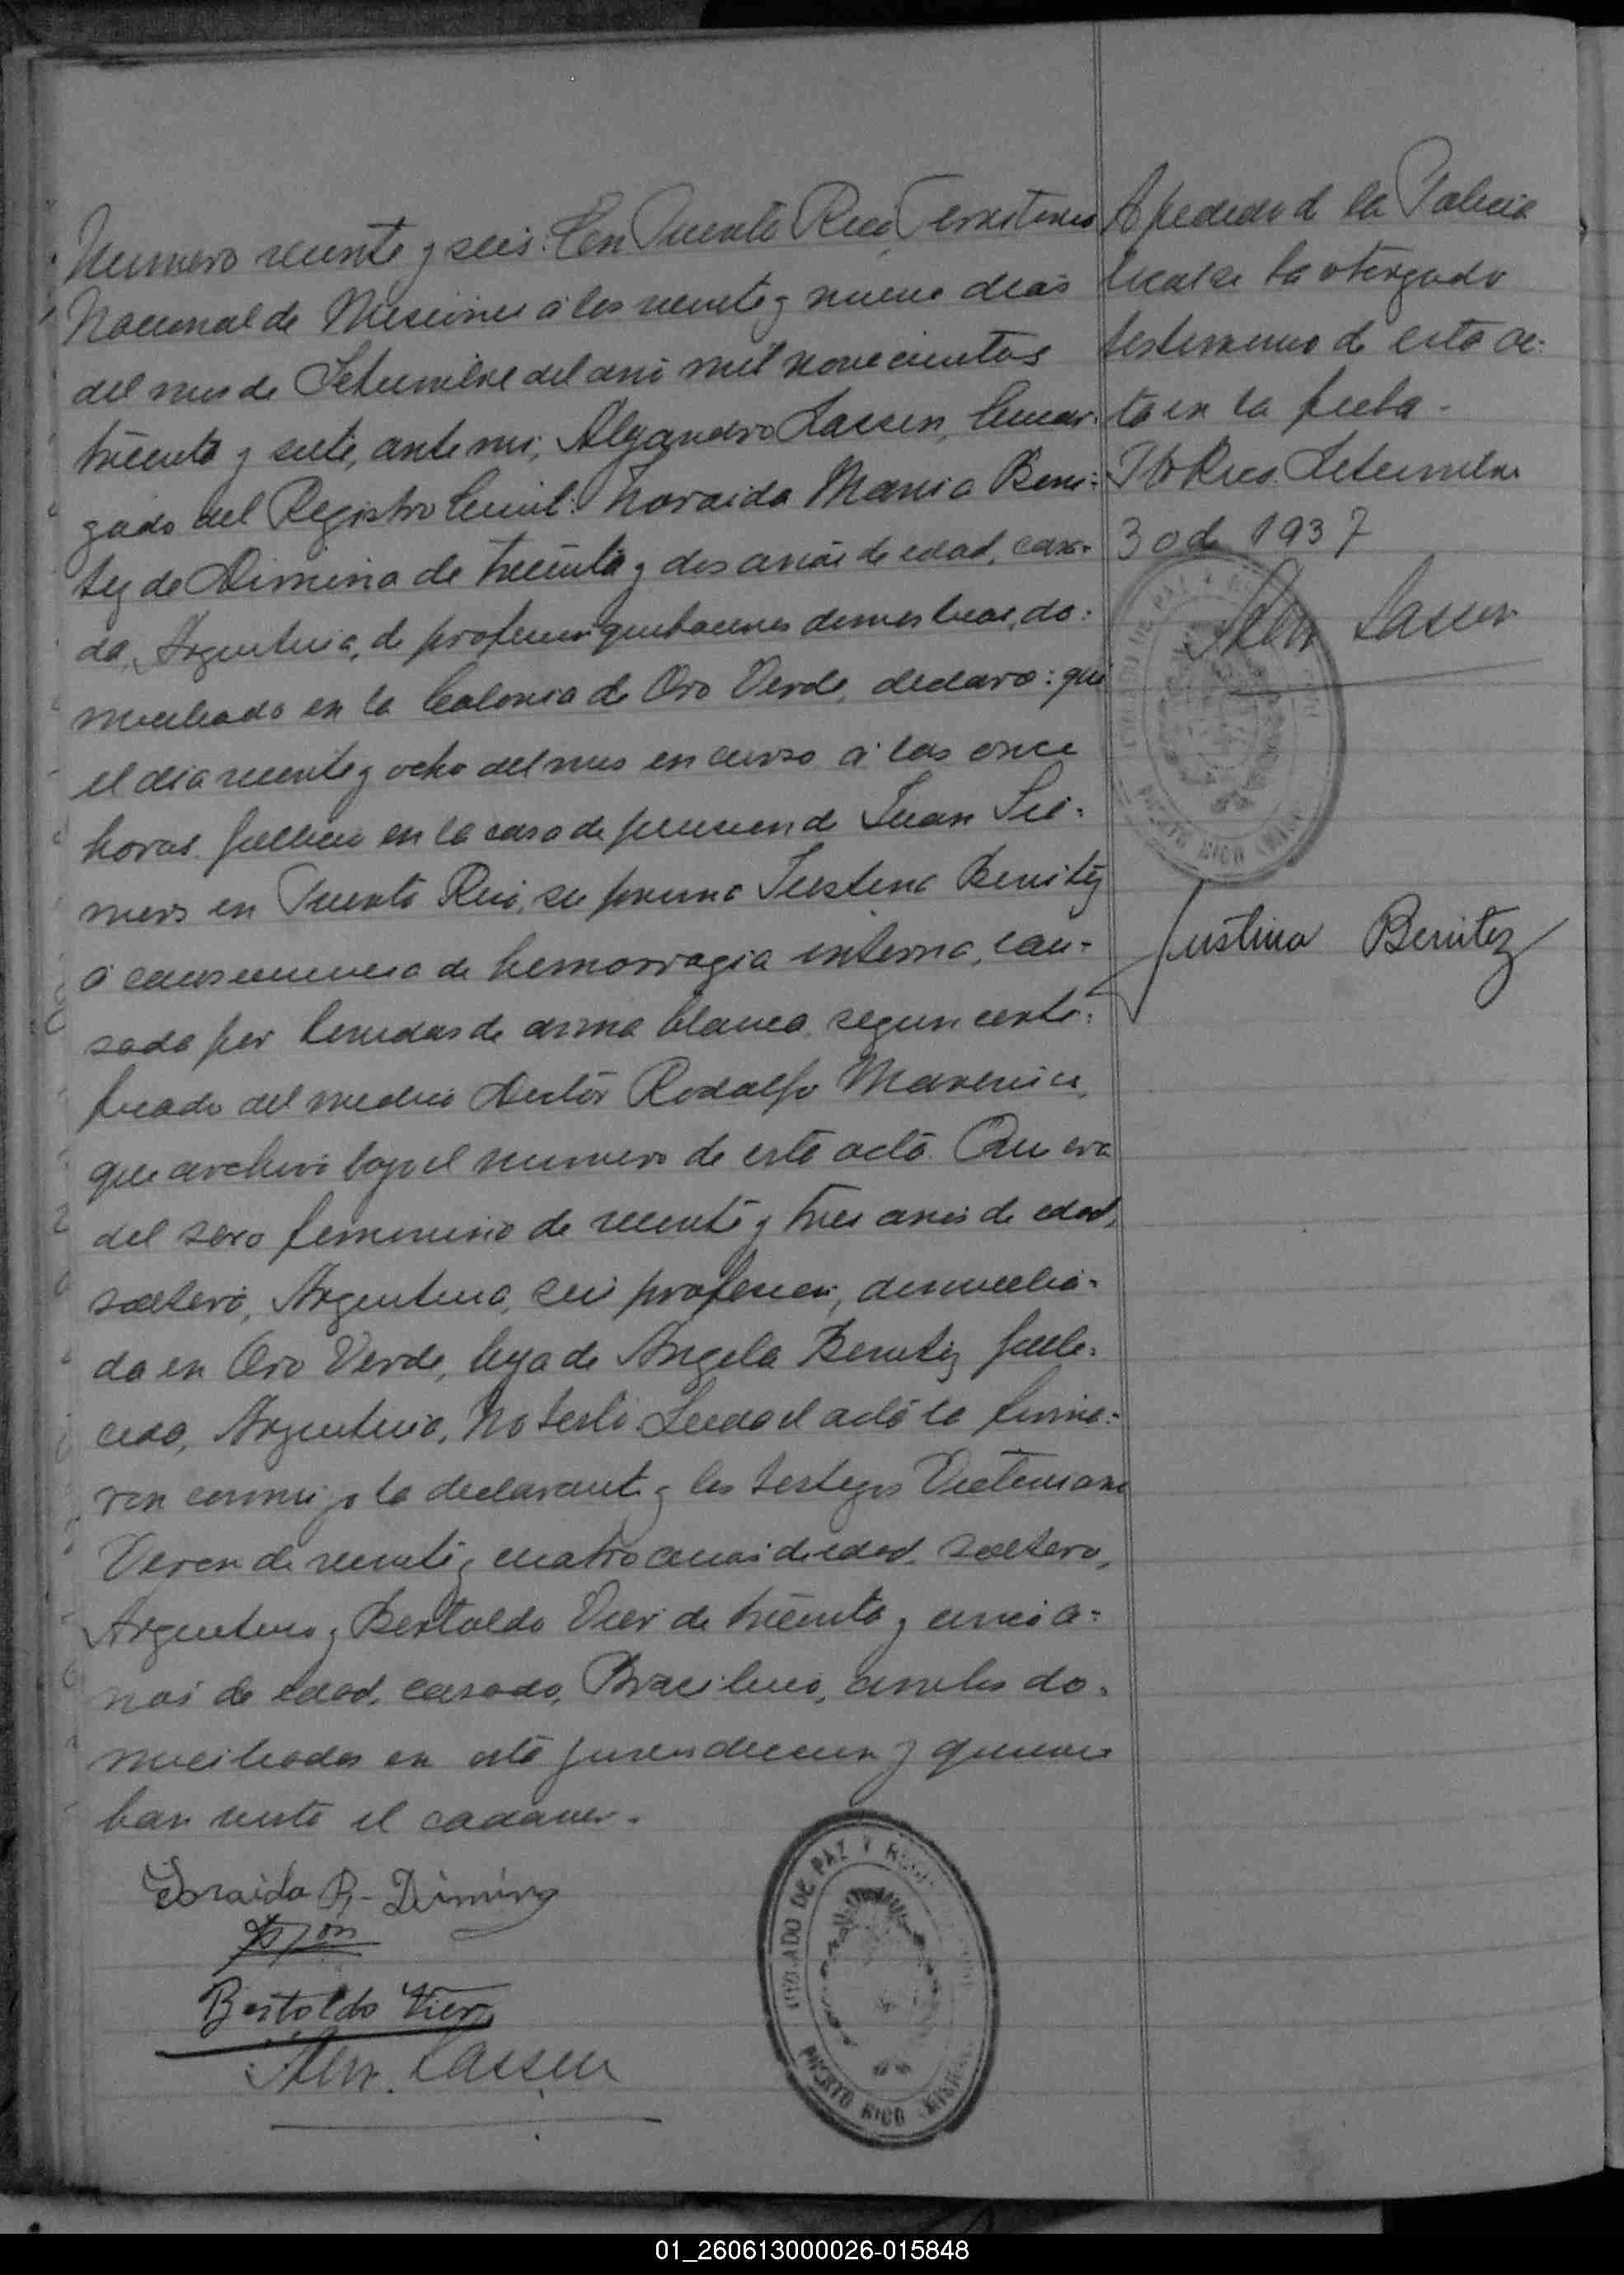 Numero veinte y seis. En Puerto Rico, Territorio
Nacional de Misiones á los veinte y nueve dias
del mes de Setiembre del año mil novecientos
treinta y siete, ante mi, Alejandro Lassen, Encar-
gado del Registro Civil: Zoraida Maria Beni-
tez de Dimina de treinta y dos años de edad, casa-
da, Argentina, de profesion quehaceres domesticos, do-
miciliada en la Colonia de Oro Verde, declaro: que
el dia veinte y ocho del mes en curso á las once
horas fallecio en la casa de pension de Juan
en Puerto Rico, su prima Justina Benitez
á consecuencia de hemorragia interna, cau-
sada por heridas de arma blanca, segun certi-
ficado del medico Doctor Rodolfo
que archivo bajo el numero de esta acta. Que era
del sexo femenino de veinte y tres años de edad,
soltera, Argentina, sin profesion, domicilia-
da en Oro Verde, hija de Angela Benitez falle-
cida, Argentina, No testó. Leida el acta la firma-
ron conmigo la declarante y los testigos
Veron de veinte y cuatro años de edad, soltero,
Argentino y Bertoldo Vier de treinta y cinco a-
ños de edad, casado, Brasilero, ambos do-
miciliados en esta jurisdiccion y quienes
han visto el cadaver.
Zoraida B. Dimina
Bertoldo Vier
Alej. Lassen
JUZGADO DE PAZ Y
PUERTO RICO
A pedido de la Policia
local se ha otorgado
testimonio de esta ac-
ta en la fecha.
Pto Rico Setiembre
30 de 1937
Alej. Lassen
PUERTO RICO
Justina Benitez
01_260613000026-015848